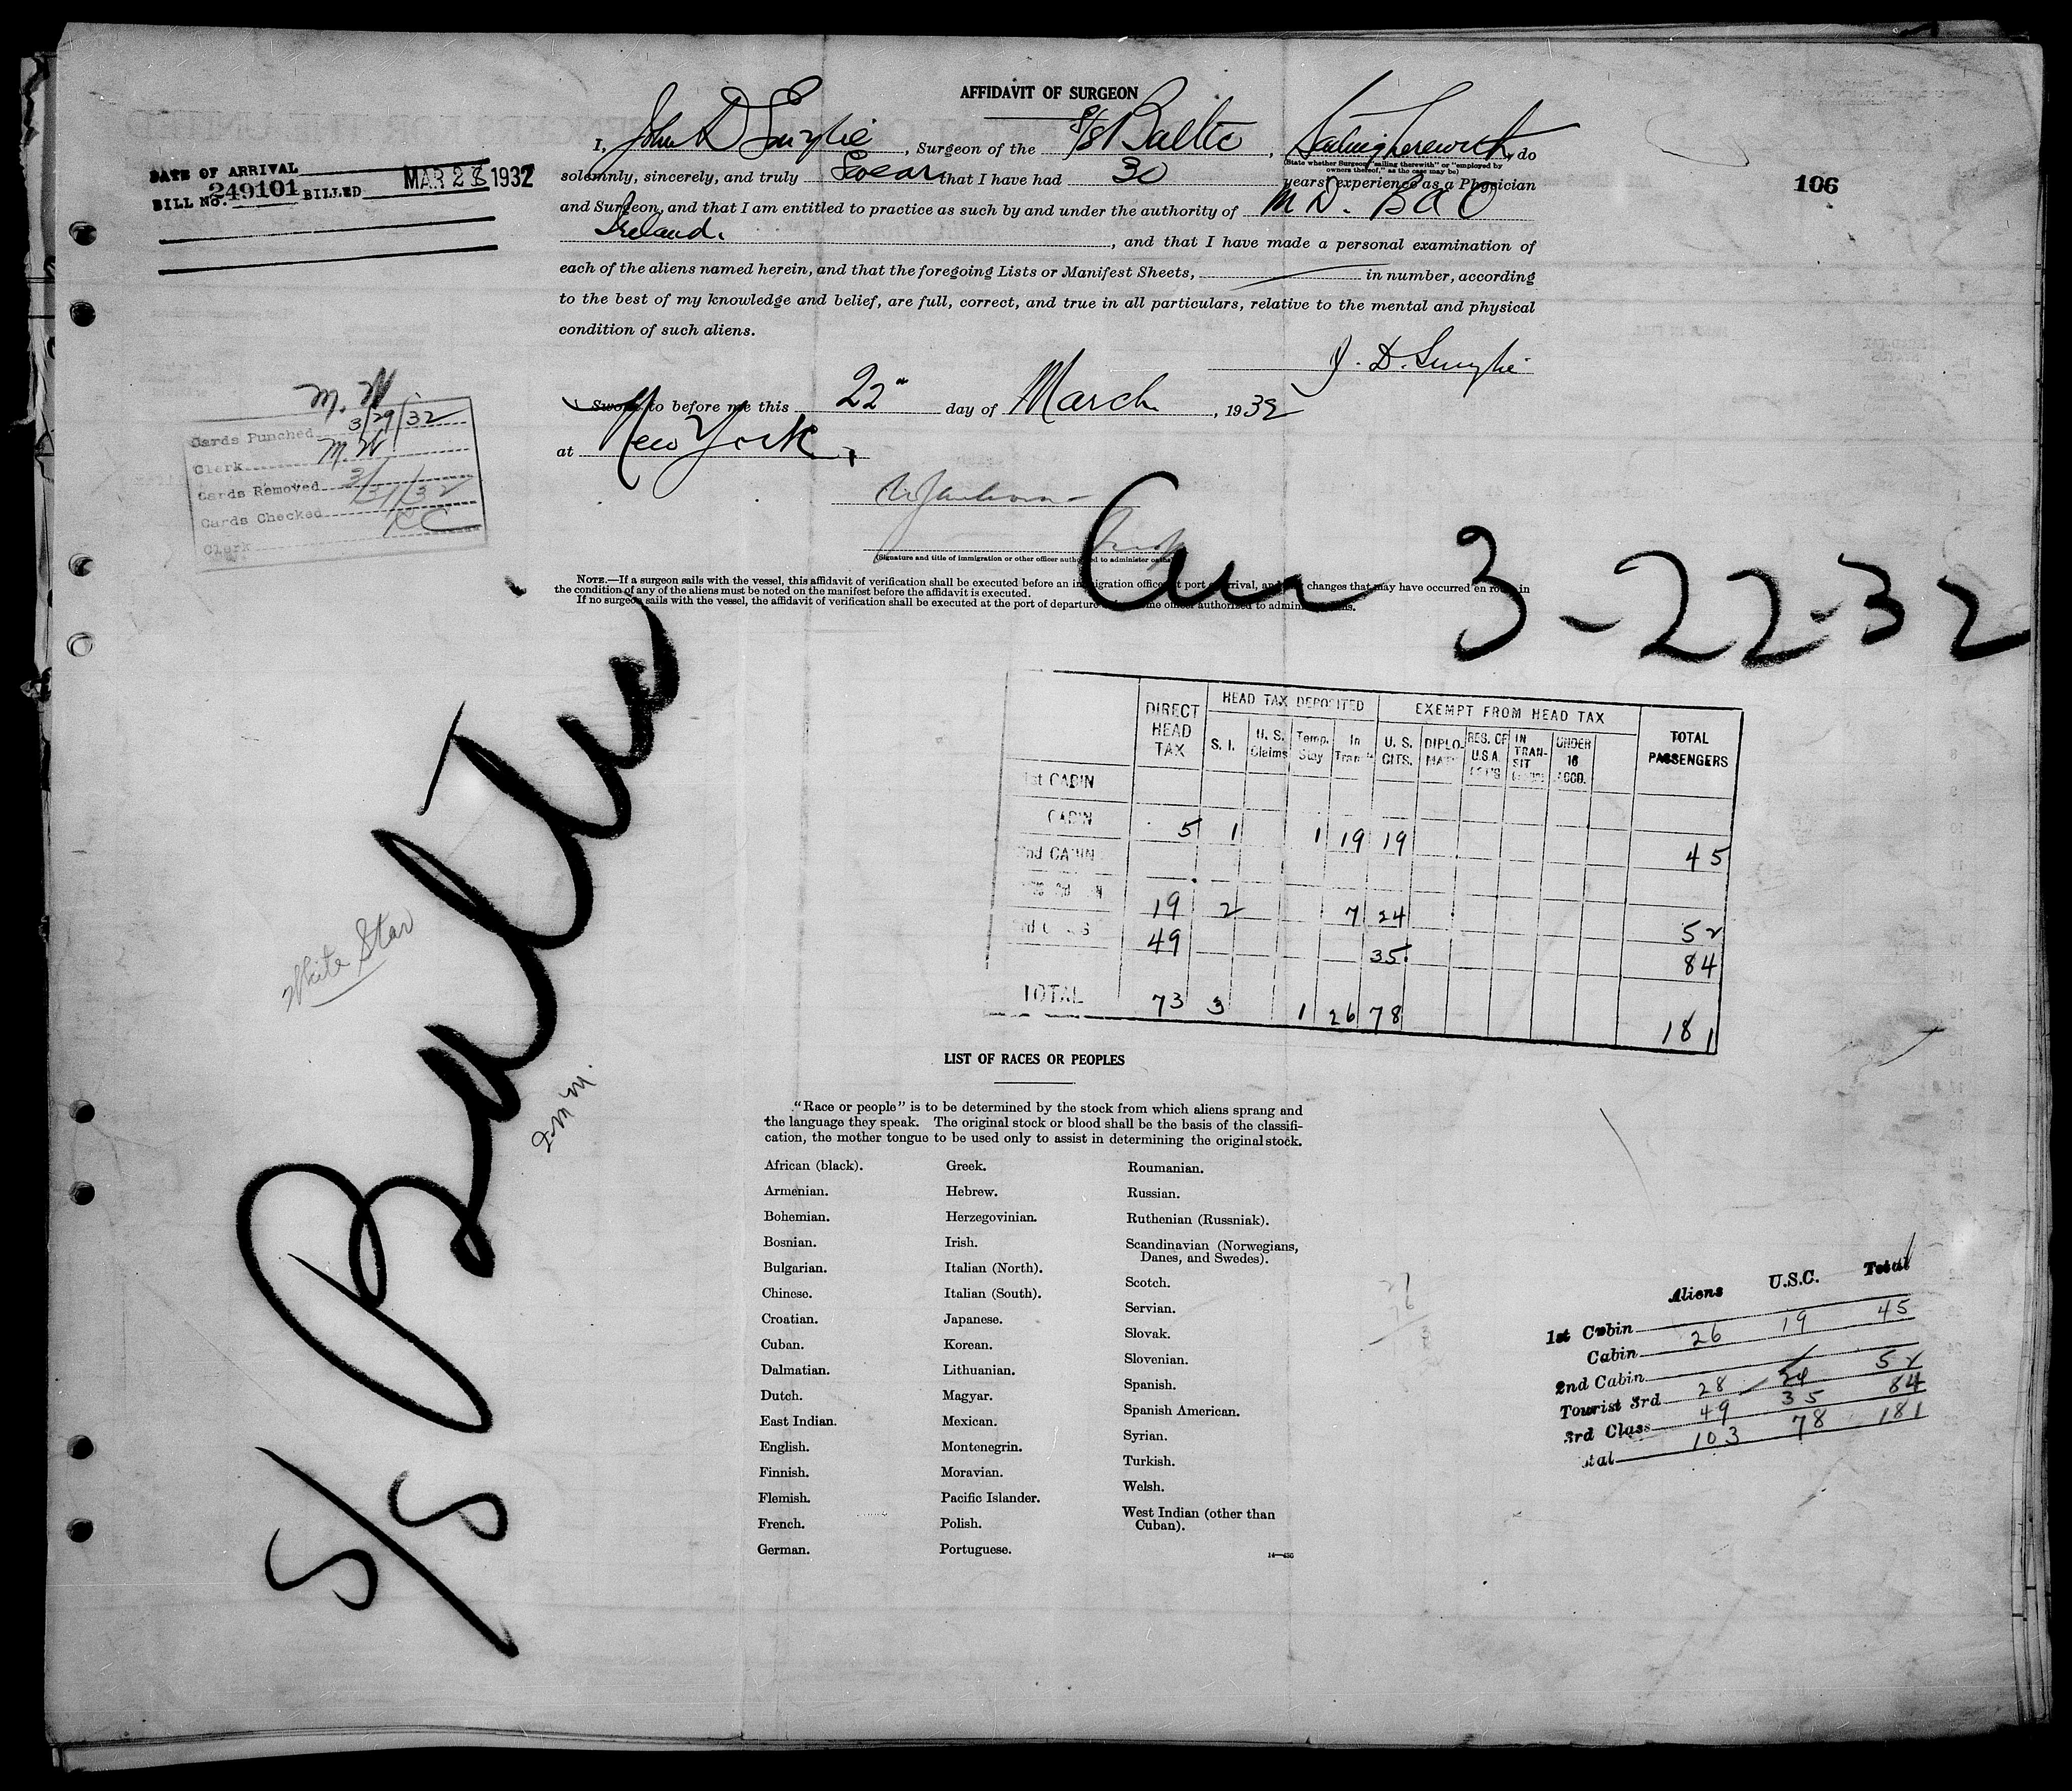 AFFIDAVIT OF SURGEON
I, John D Smylie, Surgeon of the S/S Baltic, Sailing therewith, do
(State whether Surgeon "sailing therewith" or "employed by
owners thereof," as the case may be)
solemnly, sincerely, and truly Swear that I have had 30 years' experience as a Physician
and Surgeon, and that I am entitled to practice as such by and under the authority of M D. B A O
Ireland., and that I have made a personal examination of
each of the aliens named herein, and that the foregoing Lists or Manifest Sheets, in number, according
to the best of my knowledge and belief, are full, correct, and true in all particulars, relative to the mental and physical
condition of such aliens.
J. D. Smylie
Sworn to before me this 22" day of March, 1932
at New York.
(Signature and title of immigration or other officer authorized to administer oaths)
NOTE.—If a surgeon sails with the vessel, this affidavit of verification shall be executed before an immigration officer at port of arrival, and any changes that may have occurred en route in
the condition of any of the aliens must be noted on the manifest before the affidavit is executed.
If no surgeon sails with the vessel, the affidavit of verification shall be executed at the port of departure before some officer authorized to administer oaths.
DATE OF ARRIVAL
BILL No. 249101 BILLED MAR 28 1932
106
M. W
Cards Punched 3/29/32
Clerk M. W
Cards Removed 3/31/32
Cards Checked RC
Clerk
Arr 3-22-32
S/S Baltic
White Star
HEAD TAX DEPOSITED EXEMPT FROM HEAD TAX
DIRECT HEAD TAX S. I. U. S. Claims Temp. Stay In Tran. U. S. CITS. DIPLOMAT RES. OF U.S.A. IN TRANSIT UNDER 16 ACCD. TOTAL PASSENGERS
1st CABIN
CABIN 5 1 1 19 19 45
2nd CABIN
19 2 7 24 52
3rd CLASS 49 35 84
TOTAL 73 3 1 26 78 181
LIST OF RACES OR PEOPLES
"Race or people" is to be determined by the stock from which aliens sprang and
the language they speak. The original stock or blood shall be the basis of the classifi-
cation, the mother tongue to be used only to assist in determining the original stock.
African (black).
Armenian.
Bohemian.
Bosnian.
Bulgarian.
Chinese.
Croatian.
Cuban.
Dalmatian.
Dutch.
East Indian.
English.
Finnish.
Flemish.
French.
German.
Greek.
Hebrew.
Herzegovinian.
Irish.
Italian (North).
Italian (South).
Japanese.
Korean.
Lithuanian.
Magyar.
Mexican.
Montenegrin.
Moravian.
Pacific Islander.
Polish.
Portuguese.
Roumanian.
Russian.
Ruthenian (Russniak).
Scandinavian (Norwegians,
Danes, and Swedes).
Scotch.
Servian.
Slovak.
Slovenian.
Spanish.
Spanish American.
Syrian.
Turkish.
Welsh.
West Indian (other than
Cuban).
14—456
Aliens U.S.C. Total
1st Cabin
Cabin 26 19 45
2nd Cabin
Tourist 3rd 28 24 52
3rd Class 49 35 84
tal 103 78 181